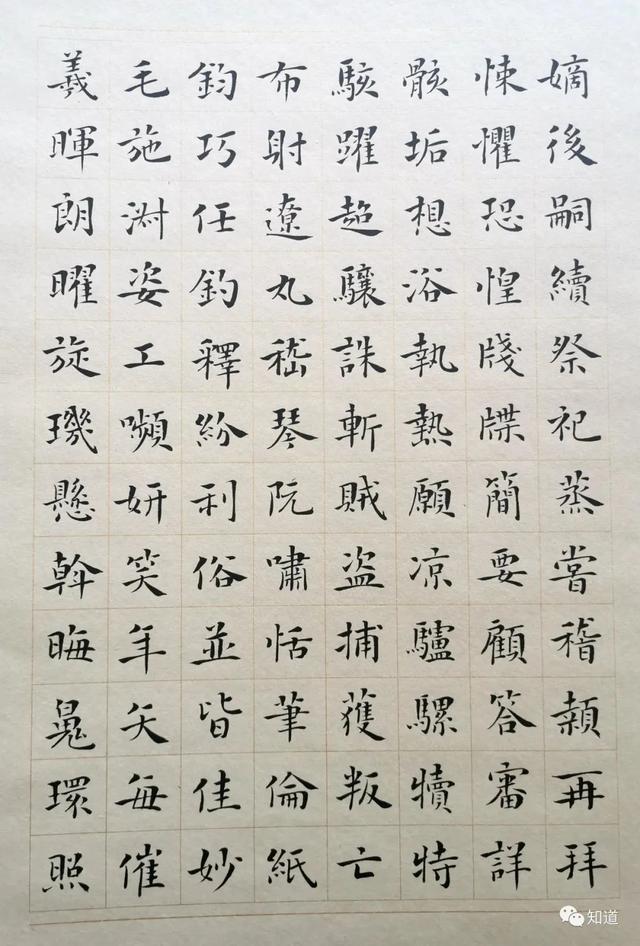 嫡後嗣續祭祀蒸嘗稽顙再拜
悚懼恐惶牋牒簡要顧答審詳
骸垢想浴執熱願凉驢騾犢特
駭躍超驤誅斬賊盜捕獲叛亡
布射遼丸嵇琴阮嘯恬筆倫紙
鈞巧任釣釋紛利俗並皆佳妙
毛施淑姿工嚬妍笑年矢每催
羲暉朗曜旋璣懸斡晦魄環照
知道